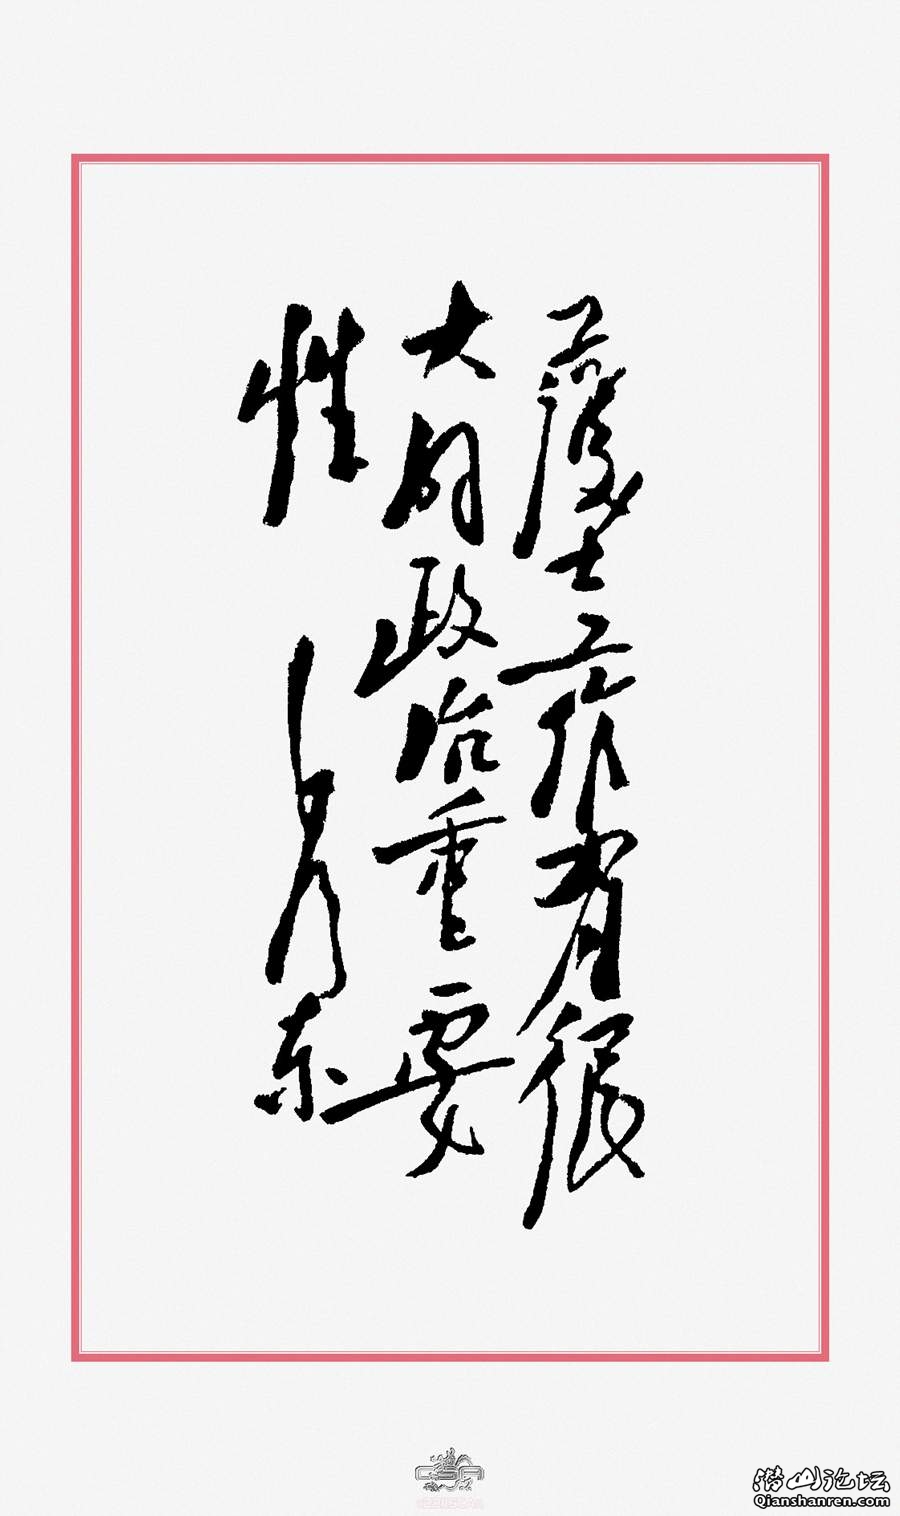 护士工作有很
大的政治重要
性
毛泽东
CSA
潜山论坛
Qianshanren.com